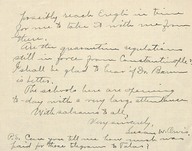 possibly reach Evegli in time
for me to take it with me from
there.
Are the quarantine regulations
still in force from Constantinople?
I shall be glad to hear if Dr. Barnum
is better.
The schools here are opening
to-day with a very large attendance.
With salaams to all,
Very sincerely,
P.S. Can you tell me how much was
paid for those